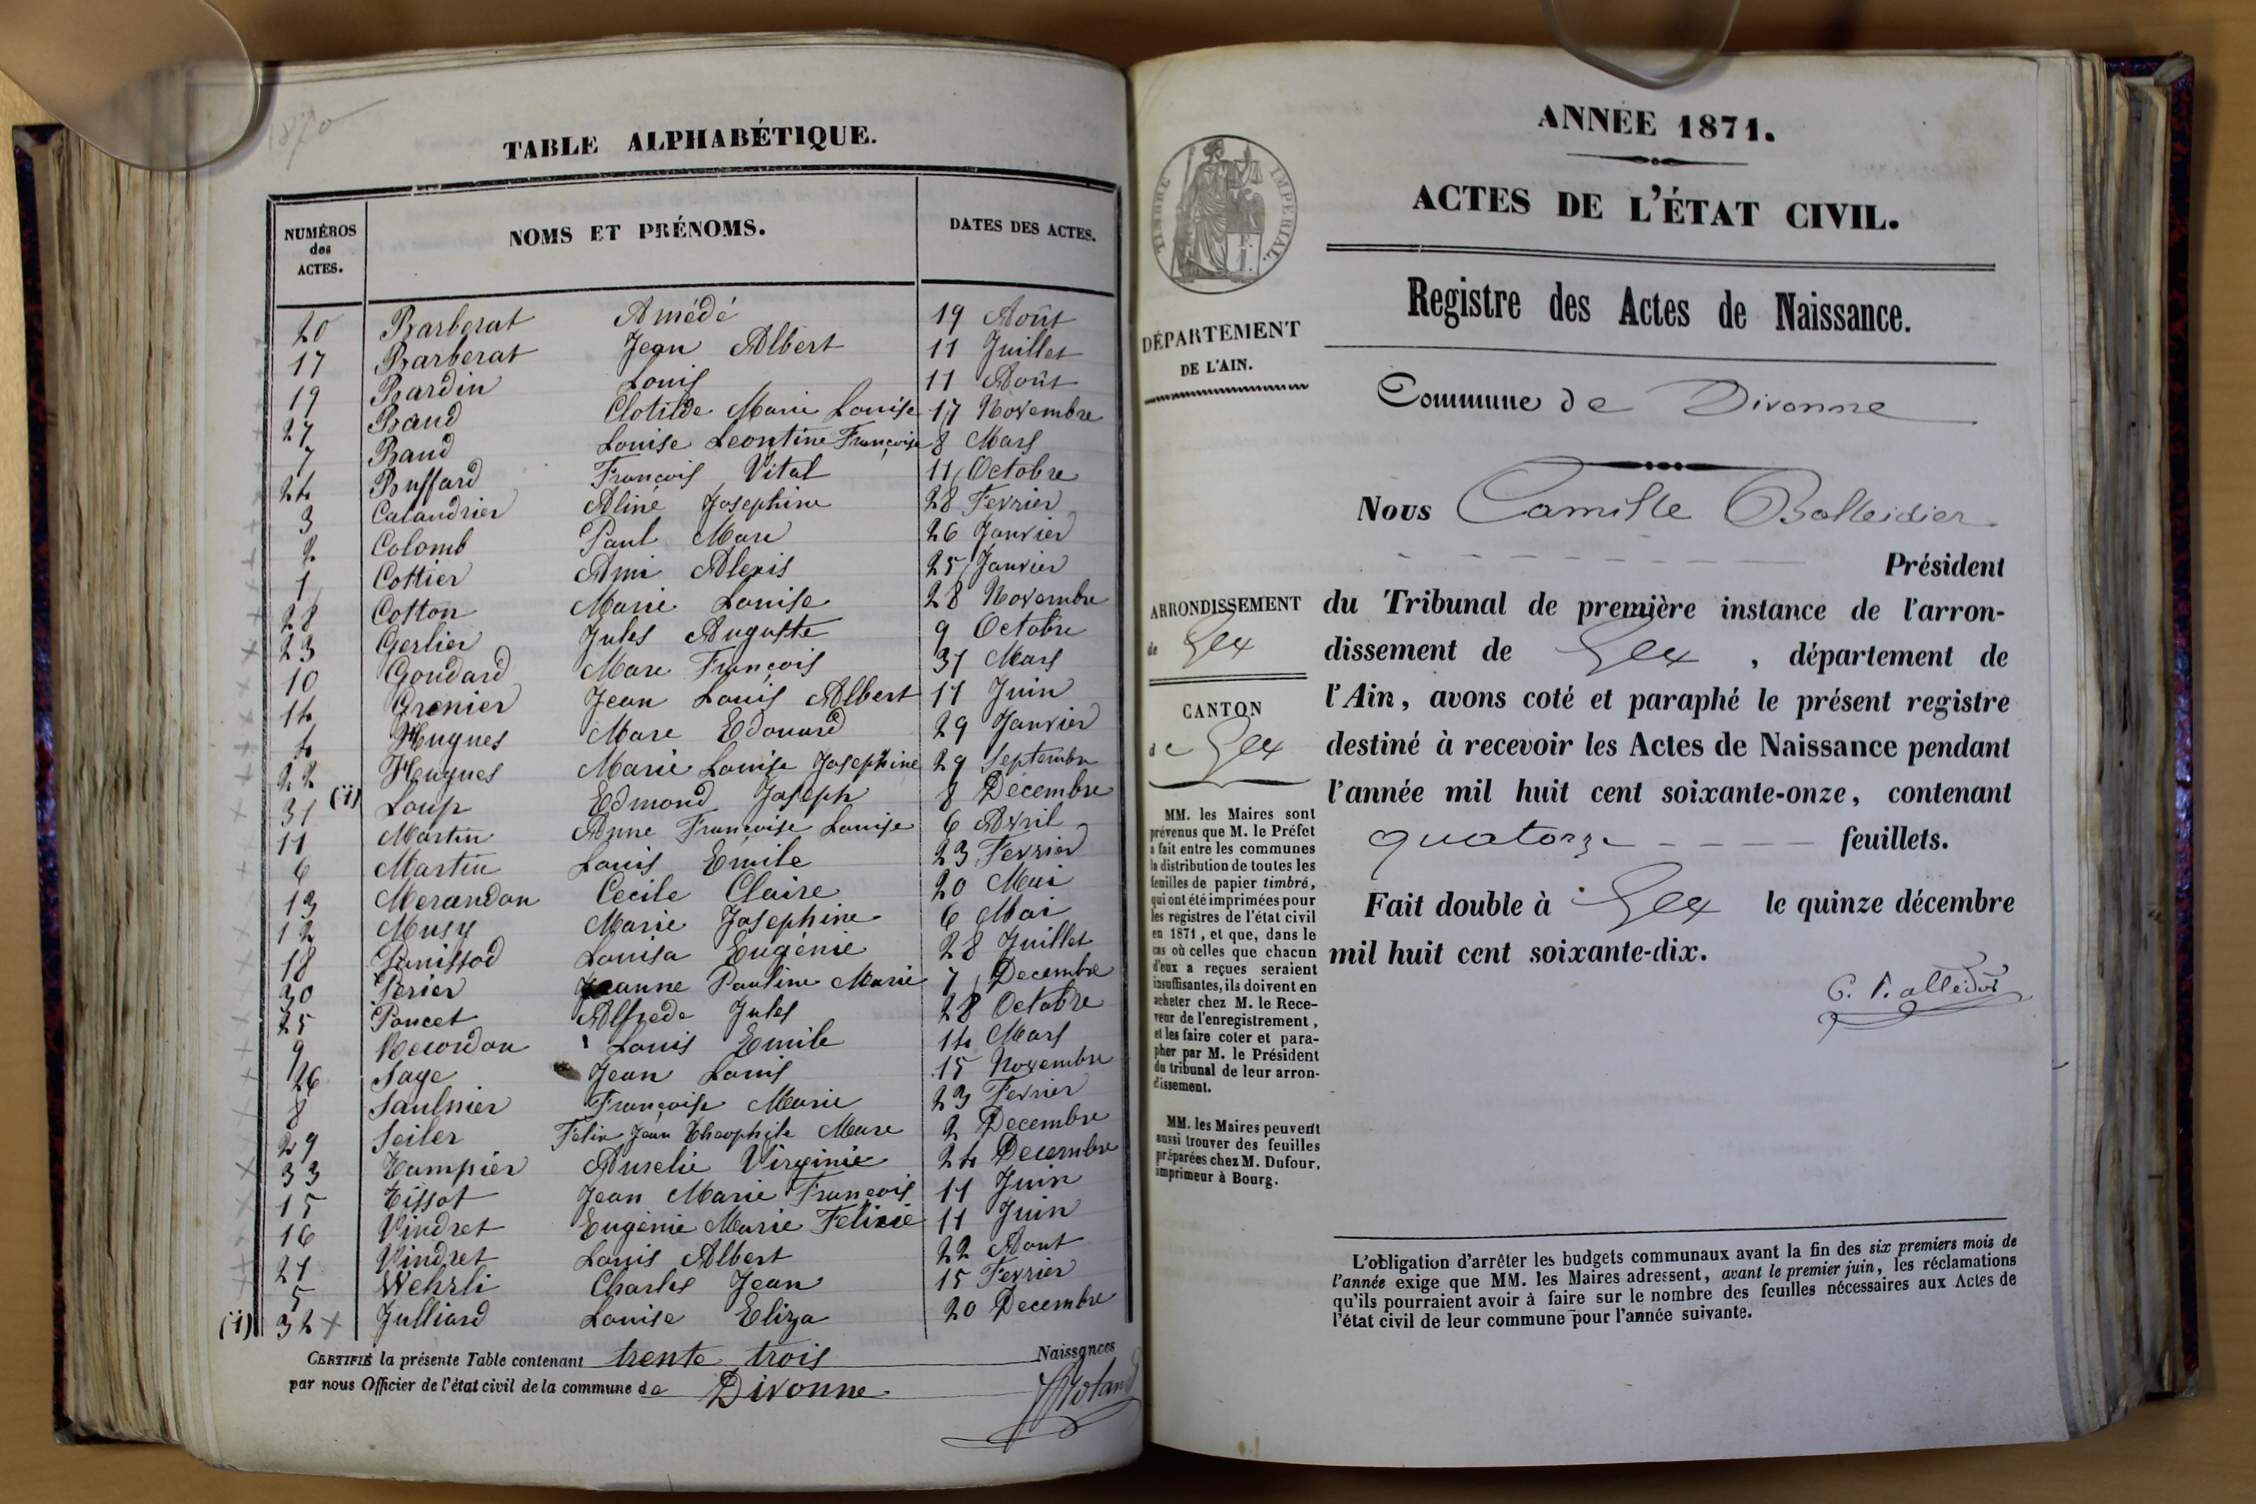 1870
TABLE ALPHABÉTIQUE.
NUMÉROS des ACTES. NOMS ET PRÉNOMS. DATES DES ACTES.
20 Barberat Amédé 19 Août
17 Barberat Jean Albert 11 Juillet
19 Bardin Louis 11 Août
27 Baud Clotilde Marie Louise 17 Novembre
7 Baud Louise Leontine Françoise 8 Mars
24 Buffard François Vital 11 Octobre
3 Calandrier Aline Josephine 28 Fevrier
2 Colomb Paul Marc 26 Janvier
1 Cottier Ami Alexis 25 Janvier
28 Cotton Marie Louise 28 Novembre
23 Gerlier Jules Auguste 9 Octobre
10 Goudard Marc François 31 Mars
14 Grenier Jean Louis Albert 11 Juin
4 Hugues Marc Edouard 29 Janvier
22 Hugues Marie Louise Josephine 29 Septembre
31 (1) Loup Edmond Joseph 8 Décembre
11 Martin Anne Françoise Louise 6 Avril
6 Martin Louis Emile 23 Fevrier
13 Merandon Cecile Claire 20 Mai
12 Musy Marie Josephine 6 Mai
18 Panissod Louisa Eugénie 28 Juillet
30 Perier Jeanne Pauline Marie 7 Decembre
25 Poncet Alfrede Jules 28 Octobre
9 Recordon Louis Emile 14 Mars
26 Sage Jean Louis 15 Novembre
8 Saulnier Françoise Marie 23 Fevrier
29 Seiler Felix Jean Théophile Marc 2 Decembre
33 Tampier Aurelie Virginie 24 Decembre
15 Tissot Jean Marie François 11 Juin
16 Vindret Eugénie Marie Felicie 11 Juin
21 Vindret Louis Albert 22 Aout
5 Wehrli Charles Jean 15 Fevrier
(1) 32 + Julliard Louise Eliza 20 Decembre
CERTIFIÉ la présente Table contenant trente trois Naissances
par nous Officier de l'état civil de la commune de Divonne
ANNÉE 1871.
ACTES DE L'ÉTAT CIVIL.
TIMBRE IMPÉRIAL.
Registre des Actes de Naissance.
DÉPARTEMENT
DE L'AIN.
Commune de Divonne
Nous Camille Balleidier
Président
ARRONDISSEMENT
de Gex
CANTON
de Gex
du Tribunal de première instance de l'arron-
dissement de Gex, département de
l'Ain, avons coté et paraphé le présent registre
destiné à recevoir les Actes de Naissance pendant
l'année mil huit cent soixante-onze, contenant
quatorze feuillets.
Fait double à Gex le quinze décembre
mil huit cent soixante-dix.
MM. les Maires sont
prévenus que M. le Préfet
a fait entre les communes
la distribution de toutes les
feuilles de papier timbré,
qui ont été imprimées pour
les registres de l'état civil
en 1871, et que, dans le
cas où celles que chacun
d'eux a reçues seraient
insuffisantes, ils doivent en
acheter chez M. le Rece-
veur de l'enregistrement,
et les faire coter et para-
pher par M. le Président
du tribunal de leur arron-
dissement.
MM. les Maires peuvent
aussi trouver des feuilles
préparées chez M. Dufour,
imprimeur à Bourg.
L'obligation d'arrêter les budgets communaux avant la fin des six premiers mois de
l'année exige que MM. les Maires adressent, avant le premier juin, les réclamations
qu'ils pourraient avoir à faire sur le nombre des feuilles nécessaires aux Actes de
l'état civil de leur commune pour l'année suivante.